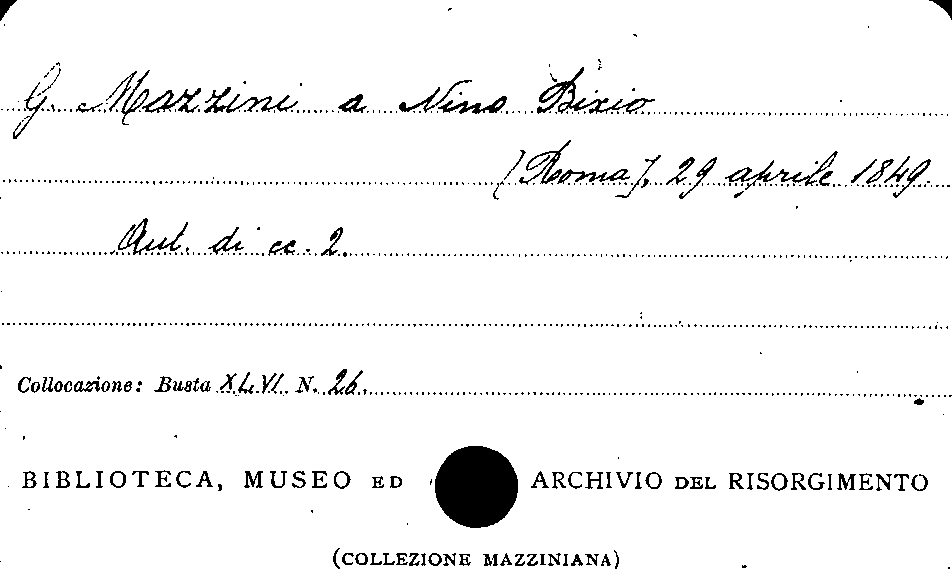 G. Mazzini a Nino Bixio
[Roma], 29 aprile 1849.
Aut. di cc. 2.
Collocazione: Busta XLVI N. 26.
BIBLIOTECA, MUSEO ED ARCHIVIO DEL RISORGIMENTO
(COLLEZIONE MAZZINIANA)